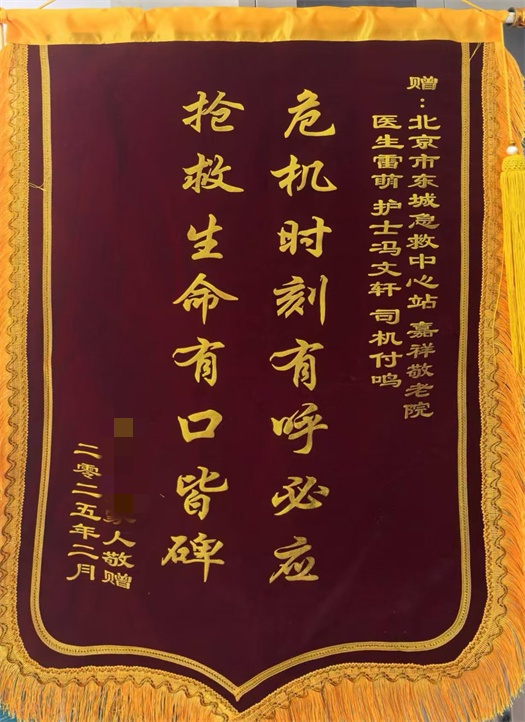 赠：北京市东城急救中心站 嘉祥敬老院
医生雷萌 护士冯文轩 司机付鸣
危机时刻有呼必应
抢救生命有口皆碑
家人敬赠
二零二五年二月